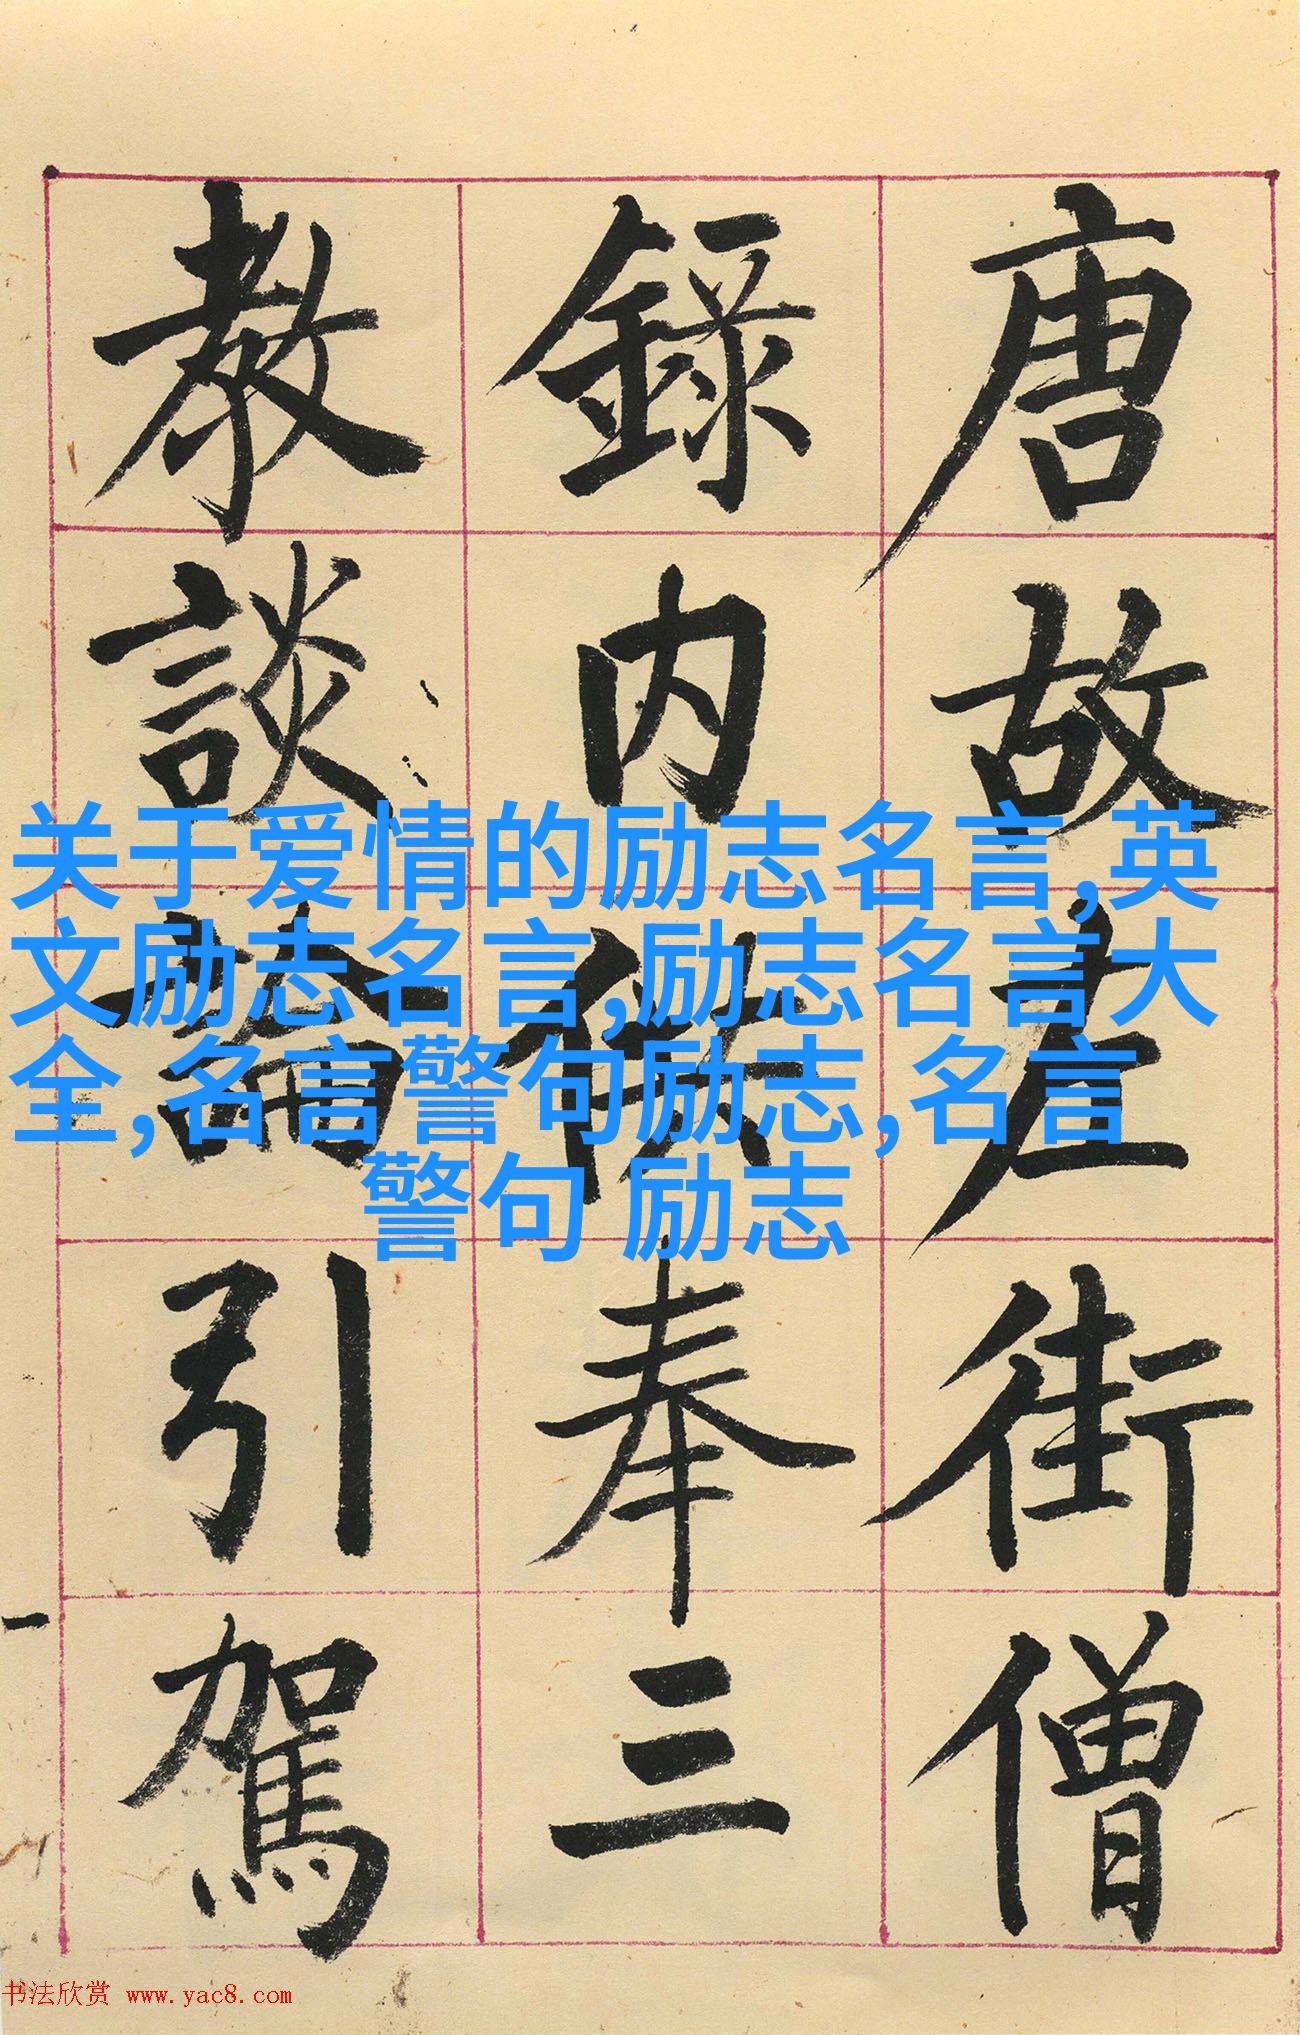 唐故左街僧
錄内供奉三
教談論引駕
关于爱情的励志名言,英
文励志名言,励志名言大
全,名言警句励志,名言
警句 励志
书法欣赏 www.yac8.com